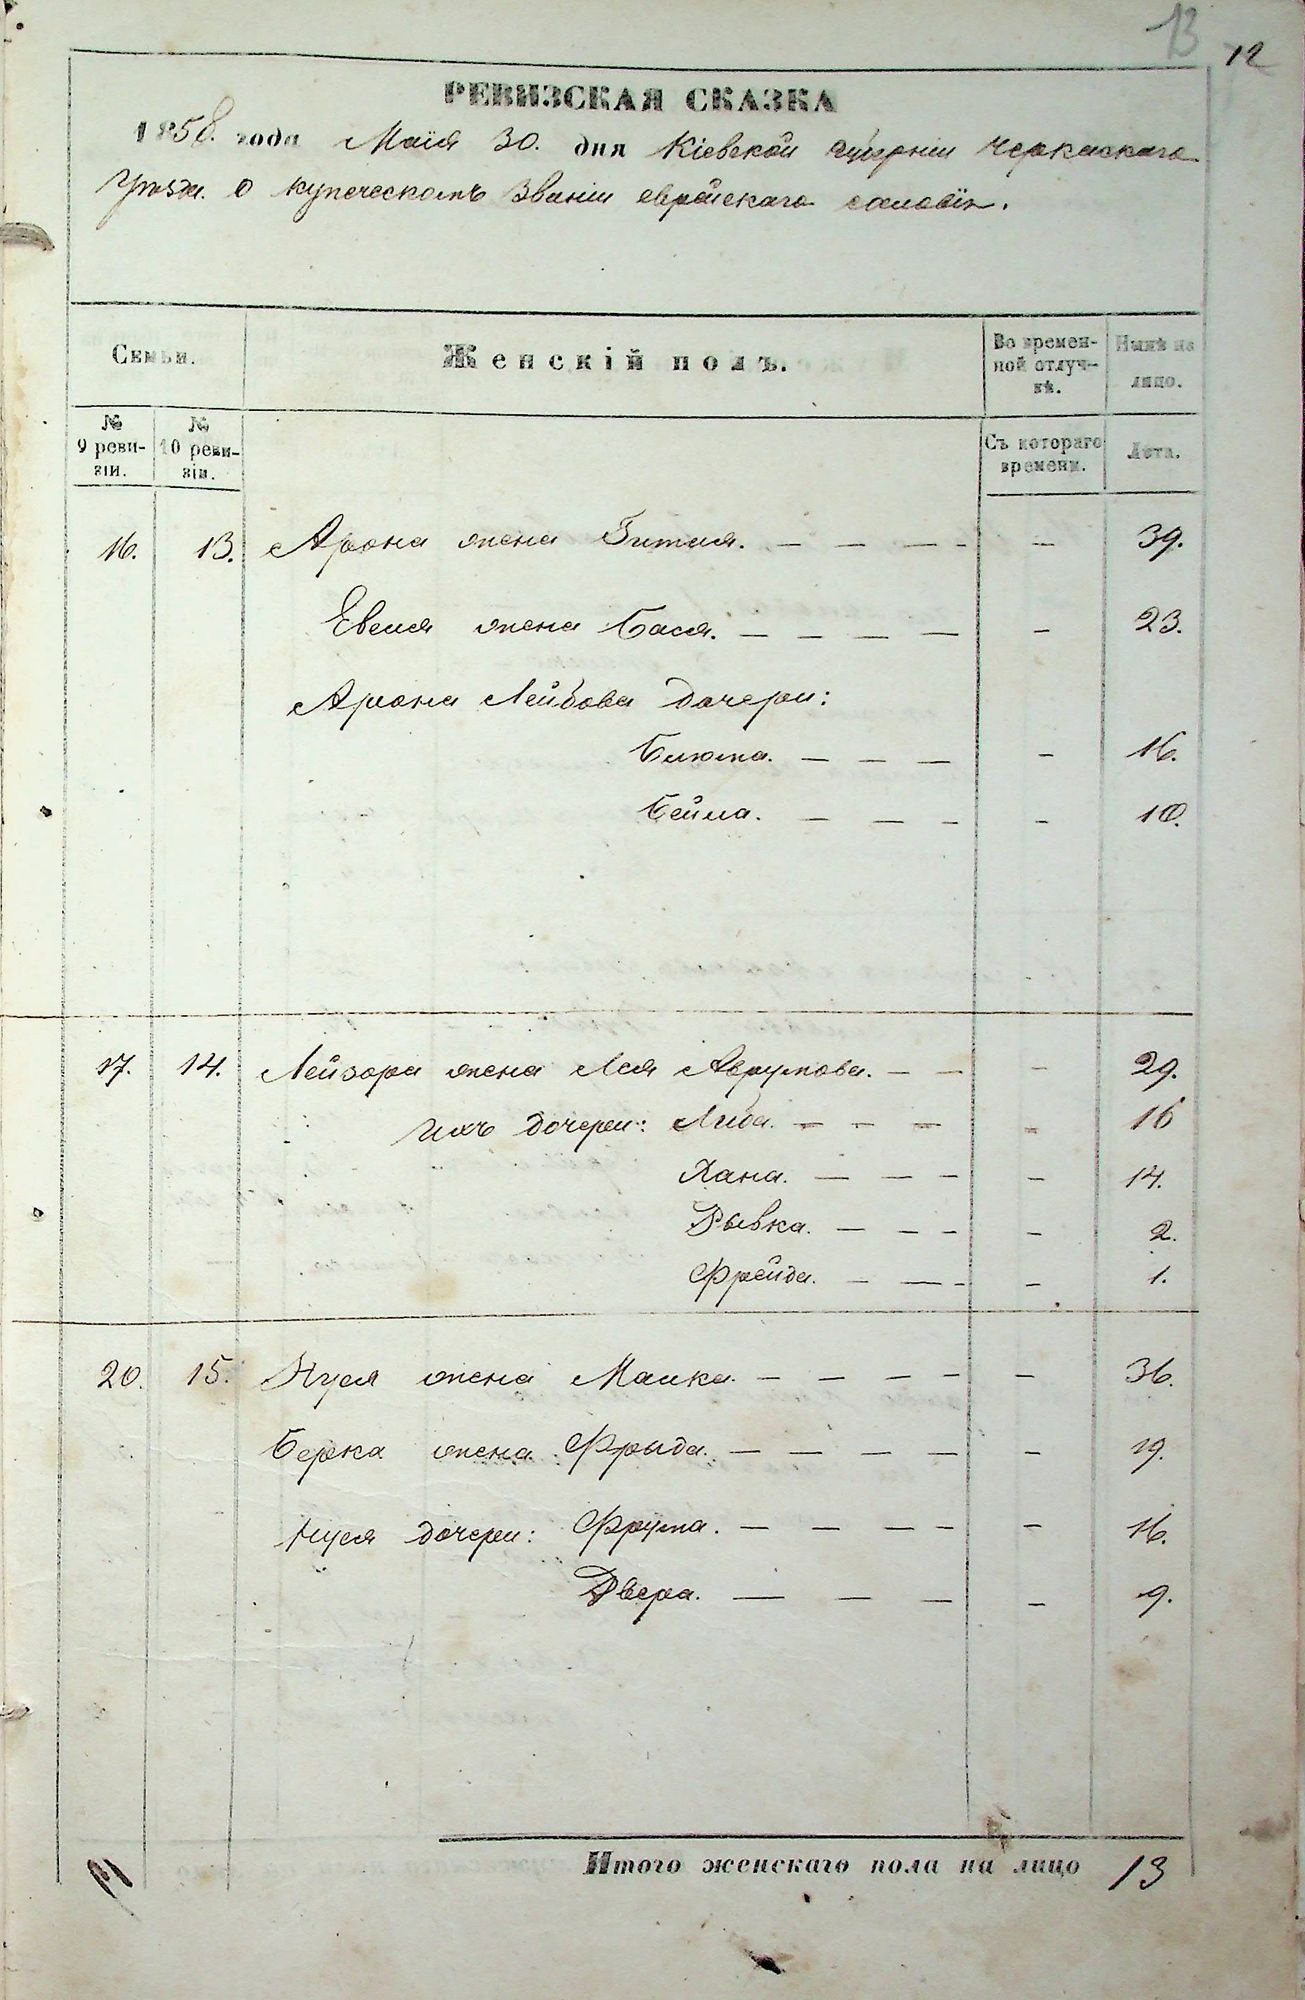 13 12
РЕВИЗСКАЯ СКАЗКА
1858. года Маія 30. дня Кіевской губерніи Черкаскаго
уѣзда. о купеческомъ званіи еврейскаго сословія.
Семьи. Женскій полъ. Во времен-ной отлуч-кѣ. Нынѣ на лицо.
№ 9 реви-зіи. № 10 реви-зіи. Съ котораго времени. Лѣта.
16. 13. Арона жена Гитля. — — — - — 39.
Евеля жена Бася. — — — — — 23.
Арона Лейбова дочери:
Блюма. — — — - 16.
Бейла. — — — - 10.
17. 14. Лейзора жена Лея Аврумова. — — — 29.
Ихъ дочери: Либа. — — — - 16
Хана. — — — — 14.
Рывка. — — — - 2.
Фрейда. — — - - 1.
20. 15. Нуся жена Малка. — — — — — 36.
Берка жена Фрыда. — — — — — 19.
Нуся дочери: Фрума. — — — — — 16.
Двера. — — — — 9.
Итого женскаго пола на лицо 13